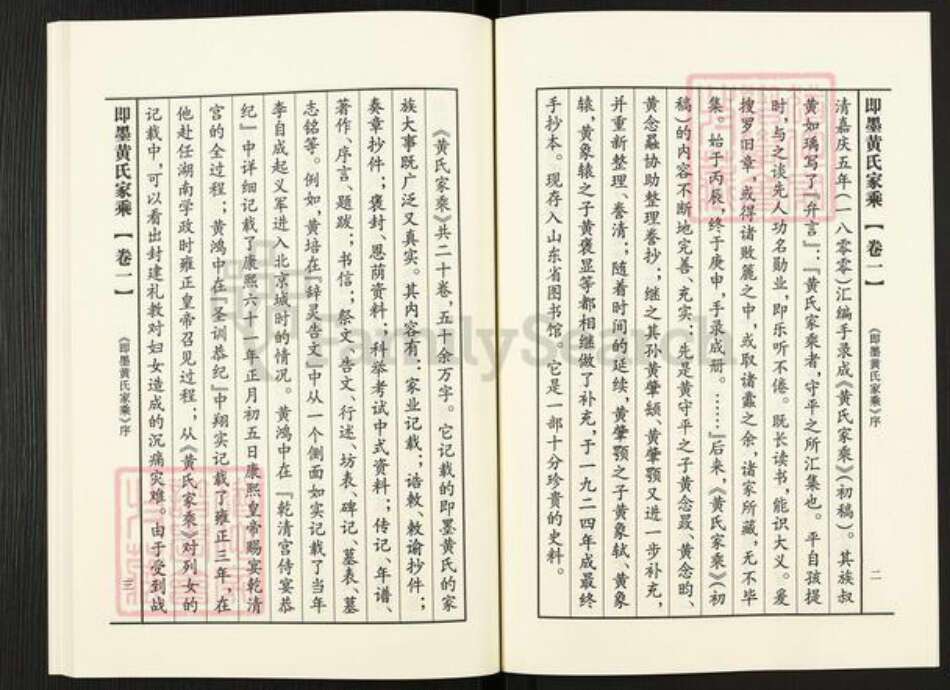 即墨黄氏家乘【卷一】 《即墨黄氏家乘》序 二
清嘉庆五年(一八零零)汇编手录成《黄氏家乘》(初稿)。其族叔
黄如瑀写了『弁言』:『黄氏家乘者,守平之所汇集也。平自孩提
时,与之谈先人功名勋业,即乐听不倦。既长读书,能识大义。爰
搜罗旧章,或得诸败簏之中,或取诸蠹之余,诸家所藏,无不毕
集。始于丙辰,终于庚申,手录成册。……』后来,《黄氏家乘》(初
稿)的内容不断地完善、充实:先是黄守平之子黄念晸、黄念昀、
黄念鼂协助整理誊抄;继之其孙黄肇𫖮、黄肇颚又进一步补充,
并重新整理、誊清;随着时间的延续,黄肇颚之子黄象轼、黄象
辕,黄象辕之子黄褒显等都相继做了补充,于一九二四年成最终
手抄本。现存入山东省图书馆。它是一部十分珍贵的史料。
《黄氏家乘》共二十卷,五十余万字。它记载的即墨黄氏的家
族大事既广泛又真实。其内容有:家业记载;诰敕、敕谕抄件;
奏章抄件;褒封、恩荫资料;科举考试中式资料;传记、年谱、
著作、序言、题跋;书信;祭文、告文、行述、坊表、碑记、墓表、墓
志铭等。例如,黄培在『辞灵告文』中从一个侧面如实记载了当年
李自成起义军进入北京城时的情况。黄鸿中在『乾清宫侍宴恭
纪』中详细记载了康熙六十一年正月初五日康熙皇帝赐宴乾清
宫的全过程;黄鸿中在『圣训恭纪』中翔实记载了雍正三年,在
他赴任湖南学政时雍正皇帝召见过程;从《黄氏家乘》对列女的
记载中,可以看出封建礼教对妇女造成的沉痛灾难。由于受到战
即墨黄氏家乘【卷一】 《即墨黄氏家乘》序 三
FamilySearch